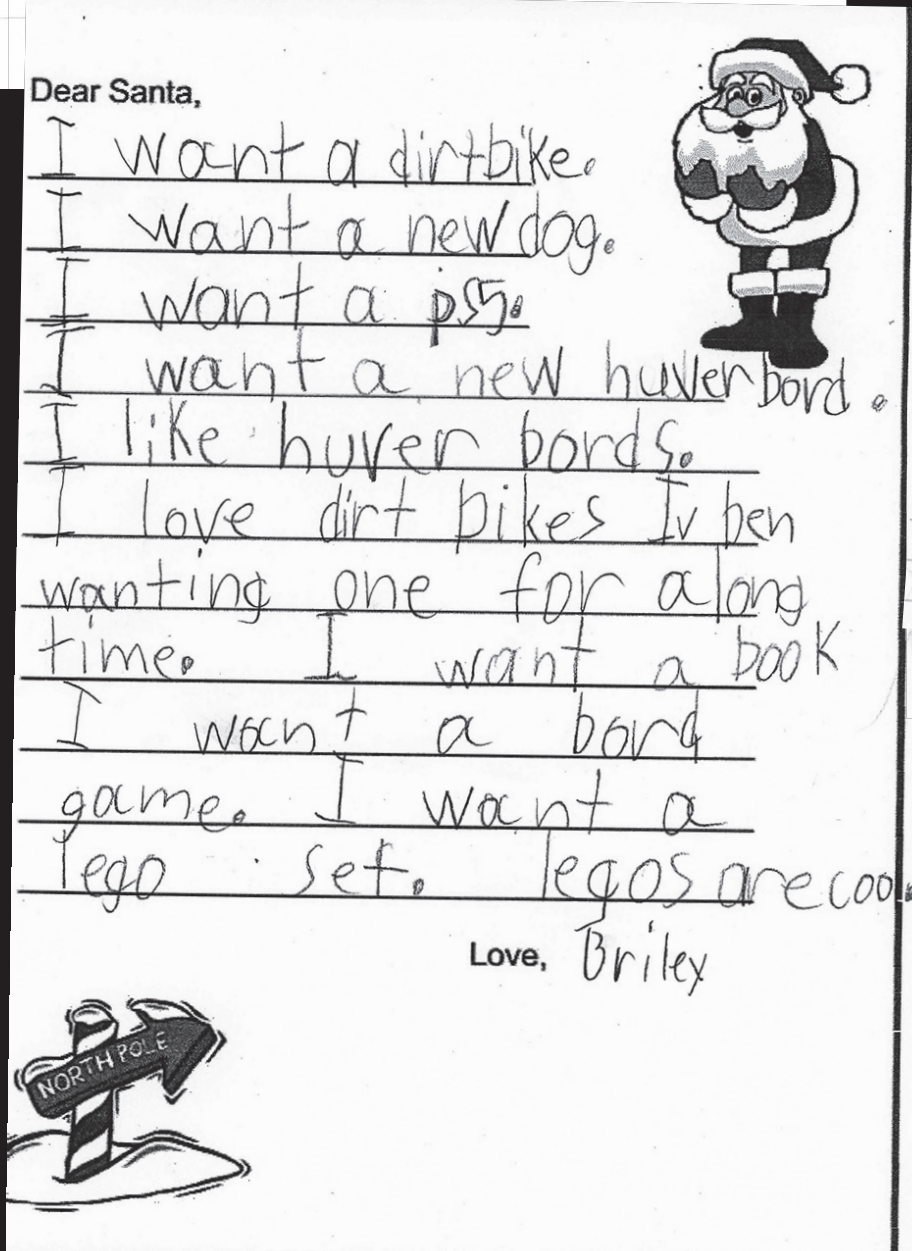 Dear Santa,
I want a dirtbike.
I want a new dog.
I want a ps5.
I want a new huverbord.
I like huver bords.
I love dirt bikes Iv ben
wanting one for along
time. I want a book
I want a bord
game. I want a
lego set. legos are coo
Love, Briley
NORTH POLE